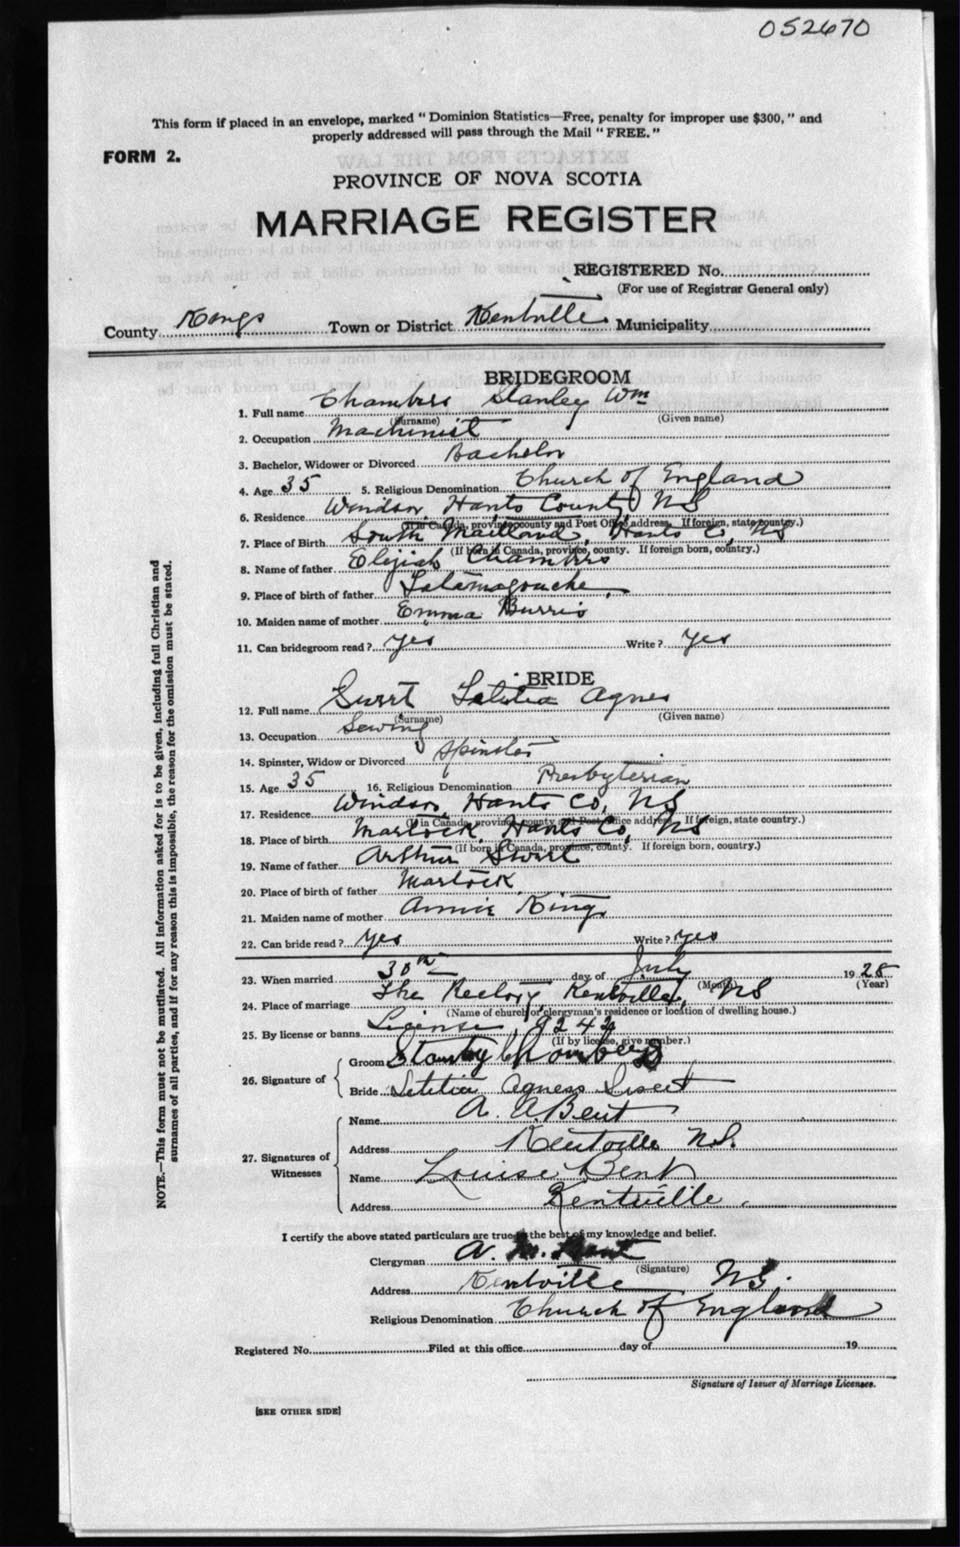 052670
This form if placed in an envelope, marked "Dominion Statistics—Free, penalty for improper use $300," and
properly addressed will pass through the Mail "FREE."
FORM 2.
PROVINCE OF NOVA SCOTIA
MARRIAGE REGISTER
REGISTERED No.
(For use of Registrar General only)
County Kings Town or District Kentville Municipality
BRIDEGROOM
1. Full name Chambers Stanley Wm
(Surname) (Given name)
2. Occupation Machinist
3. Bachelor, Widower or Divorced Bachelor
4. Age 35 5. Religious Denomination Church of England
6. Residence Windsor, Hants County NS
(If in Canada, province, county and Post Office address. If foreign, state country.)
7. Place of Birth South Maitland, Hants Co, NS
(If born in Canada, province, county. If foreign born, country.)
8. Name of father Elijah Chambers
9. Place of birth of father Tatamagouche,
10. Maiden name of mother Emma Burris
11. Can bridegroom read? yes Write? yes
BRIDE
12. Full name Swert Letitia Agnes
(Surname) (Given name)
13. Occupation Sewing
14. Spinster, Widow or Divorced Spinster
15. Age 35 16. Religious Denomination Presbyterian
17. Residence Windsor, Hants Co, NS
(If in Canada, province, county and Post Office address. If foreign, state country.)
18. Place of birth Martock, Hants Co, NS
(If born in Canada, province, county. If foreign born, country.)
19. Name of father Arthur Swert
20. Place of birth of father Martock,
21. Maiden name of mother Annie King
22. Can bride read? yes Write? yes
23. When married 30th day of July 1928
(Month) (Year)
24. Place of marriage The Rectory, Kentville, NS
(Name of church or clergyman's residence or location of dwelling house.)
25. By license or banns License, 9244
(If by license, give number.)
26. Signature of
Groom Stanley Chambers
Bride Letitia Agness Swert
27. Signatures of Witnesses
Name A. A. Bent
Address Kentville N.S.
Name Louise Bent
Address Kentville.
I certify the above stated particulars are true to the best of my knowledge and belief.
Clergyman A. M. Bent
(Signature)
Address Kentville NS.
Religious Denomination Church of England
Registered No. Filed at this office day of 19
Signature of Issuer of Marriage Licenses.
[SEE OTHER SIDE]
NOTE.—This form must not be mutilated. All information asked for is to be given, including full Christian and
surnames of all parties, and if for any reason this is impossible, the reason for the omission must be stated.